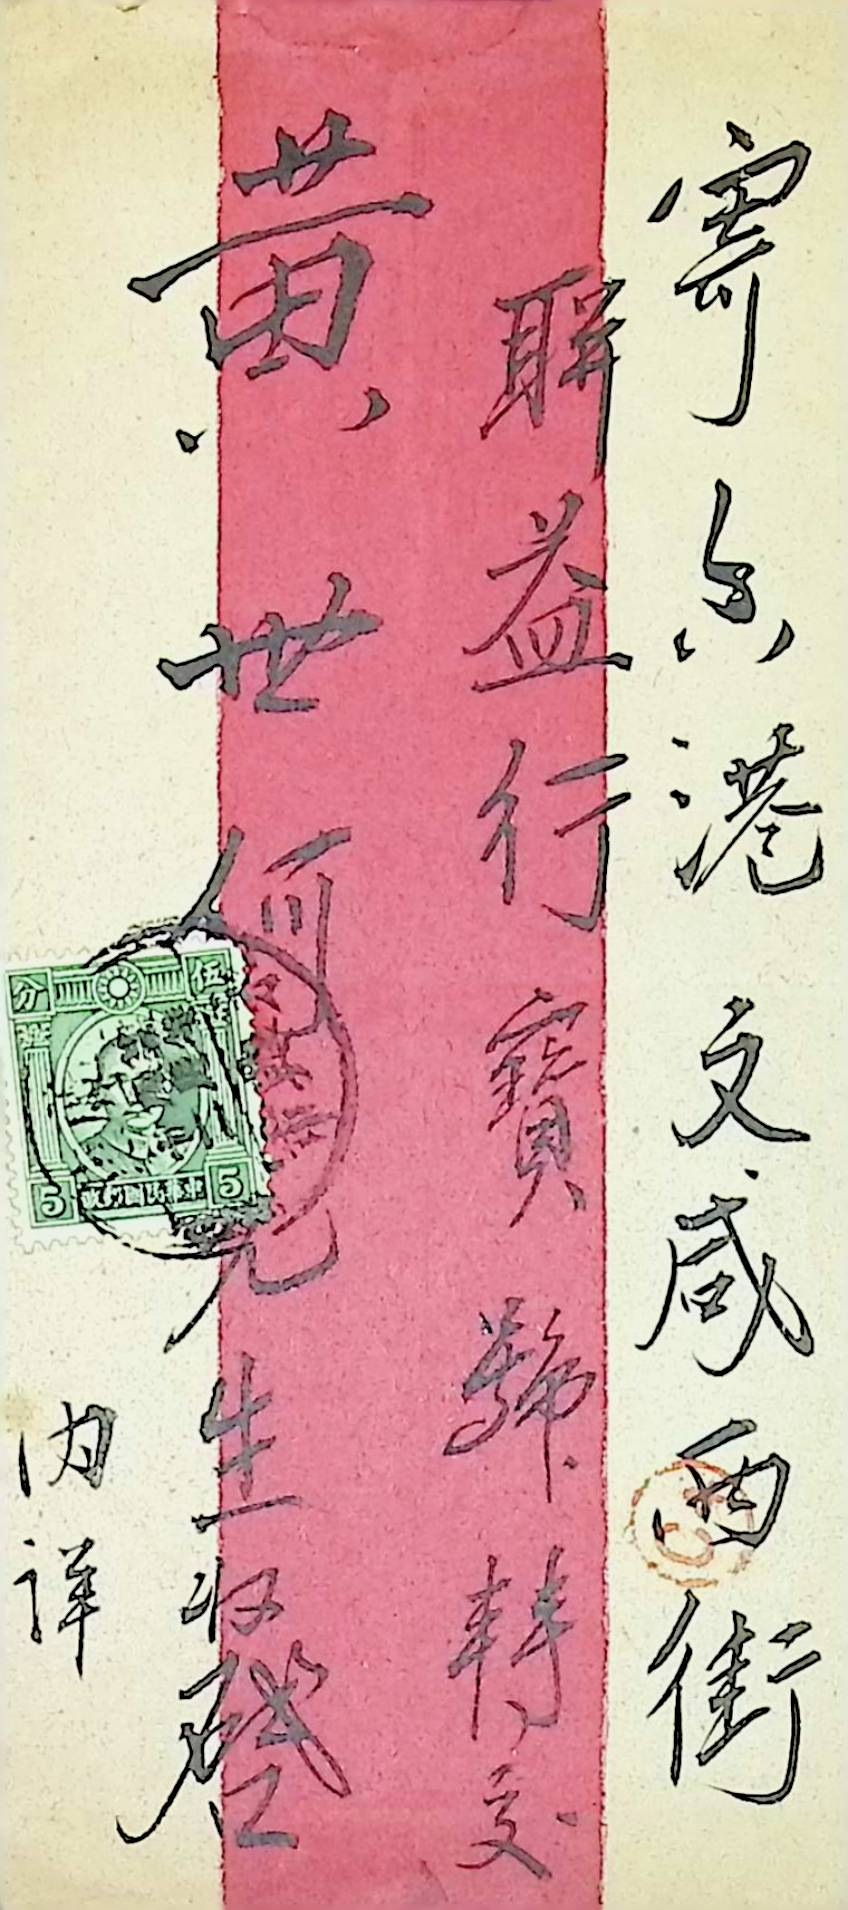 寄香港文咸西街
聯益行寶號轉交
黃世何先生收啓
内詳
伍分
5 中華民國郵政 5